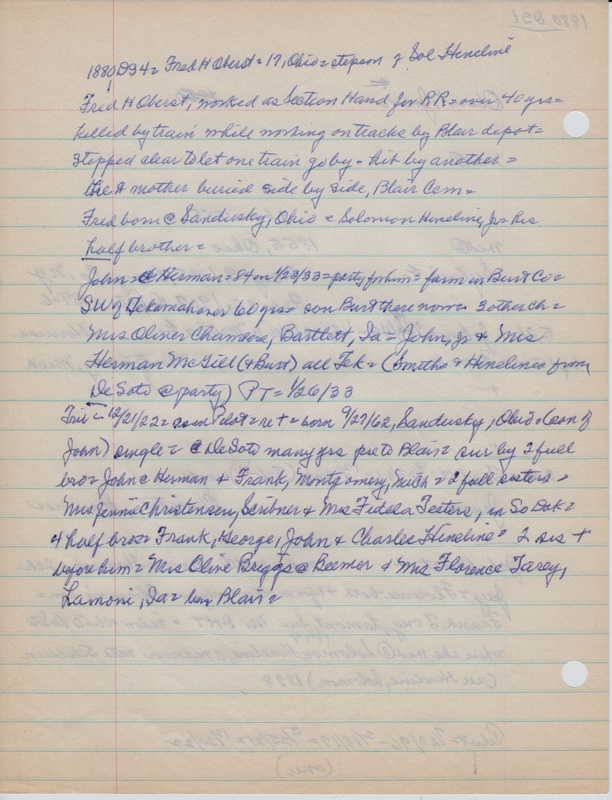 1880 DS4 = Fred H Oberst = 17, Ohio = stepson of Sol Hineline
Fred H Oberst, worked as Section Hand for RR = over 40 yrs =
killed by train while working on tracks by Blair depot =
stepped clear to let one train go by - hit by another =
He & mother buried side by side, Blair Cem =
Fred born @ Sandusky, Ohio = Solomon Hineline, Jr = his
half brother =
John = @ Herman = 84 on 1/23/33 = party for him = farm in Burt Co =
SW of Tekamah over 60 yrs = son Burt there now = 3 other ch =
Mrs Oliver Chambers, Bartlett, Ia = John, Jr & Mrs
Herman McGill (& Burt) all Tek = (Smiths & Hinelines from
DeSoto @ party) PT = 1/26/33
12/21/22 = Pilot = ret = born 9/27/62, Sandusky, Ohio = (son of
John) single = @ DeSoto many yrs pre to Blair = sur by 2 full
bro = John @ Herman & Frank, Montgomery, Mich = 2 full sisters =
Mrs Jennie Christensen, Scribner & Mrs Fidela Teeters, in So Dak =
4 half bro = Frank, George, John & Charles Hineline = 2 sis +
before him = Mrs Olive Briggs @ Beemer & Mrs Florence Tarey,
Lamoni, Ia = bur Blair =